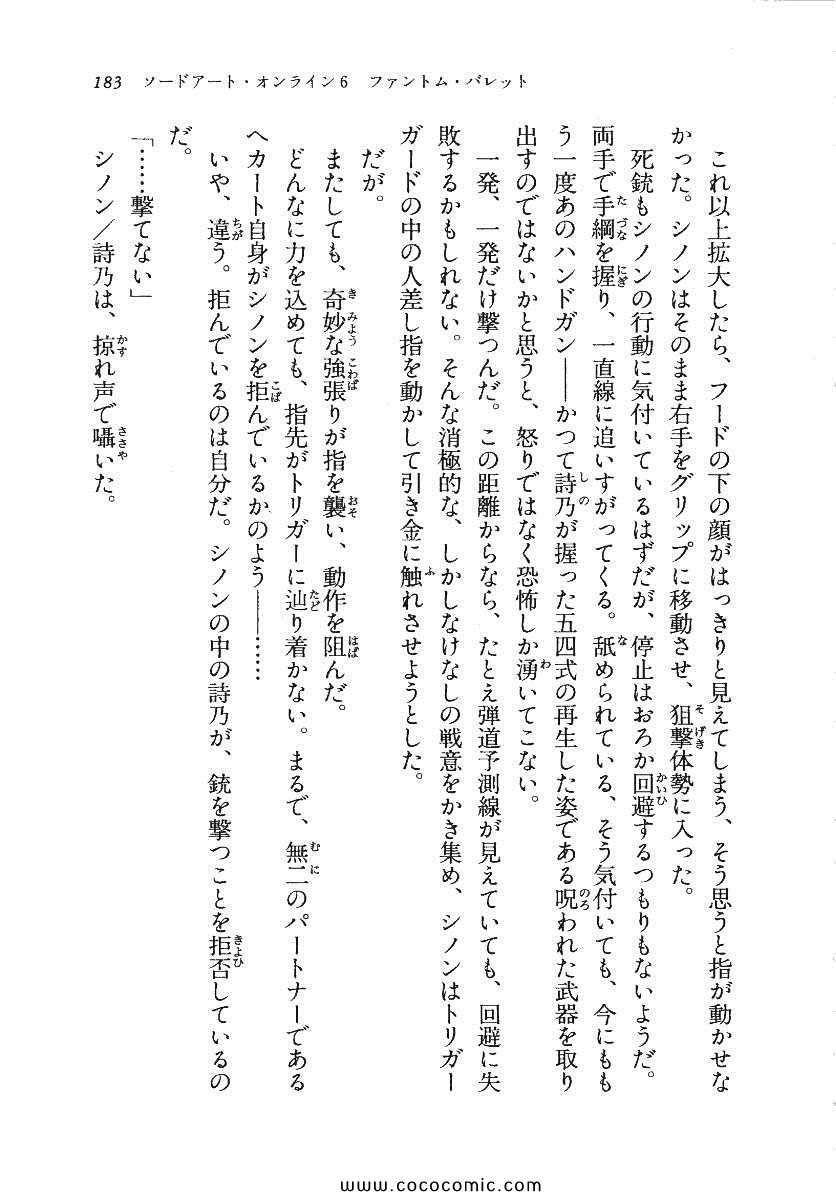 183　ソードアート・オンライン6　ファントム・バレット
　これ以上拡大したら、フードの下の顔がはっきりと見えてしまう、そう思うと指が動かせな
かった。シノンはそのまま右手をグリップに移動させ、狙撃体勢に入った。
　死銃もシノンの行動に気付いているはずだが、停止はおろか回避するつもりもないようだ。
両手で手綱を握り、一直線に追いすがってくる。舐められている、そう気付いても、今にもも
う一度あのハンドガン――かつて詩乃が握った五四式の再生した姿である呪われた武器を取り
出すのではないかと思うと、怒りではなく恐怖しか湧いてこない。
　一発、一発だけ撃つんだ。この距離からなら、たとえ弾道予測線が見えていても、回避に失
敗するかもしれない。そんな消極的な、しかしなけなしの戦意をかき集め、シノンはトリガー
ガードの中の人差し指を動かして引き金に触れさせようとした。
　だが。
　またしても、奇妙な強張りが指を襲い、動作を阻んだ。
　どんなに力を込めても、指先がトリガーに辿り着かない。まるで、無二のパートナーである
ヘカート自身がシノンを拒んでいるかのよう――……
　いや、違う。拒んでいるのは自分だ。シノンの中の詩乃が、銃を撃つことを拒否しているの
だ。
「……撃てない」
　シノン／詩乃は、掠れ声で囁いた。
www.cococomic.com